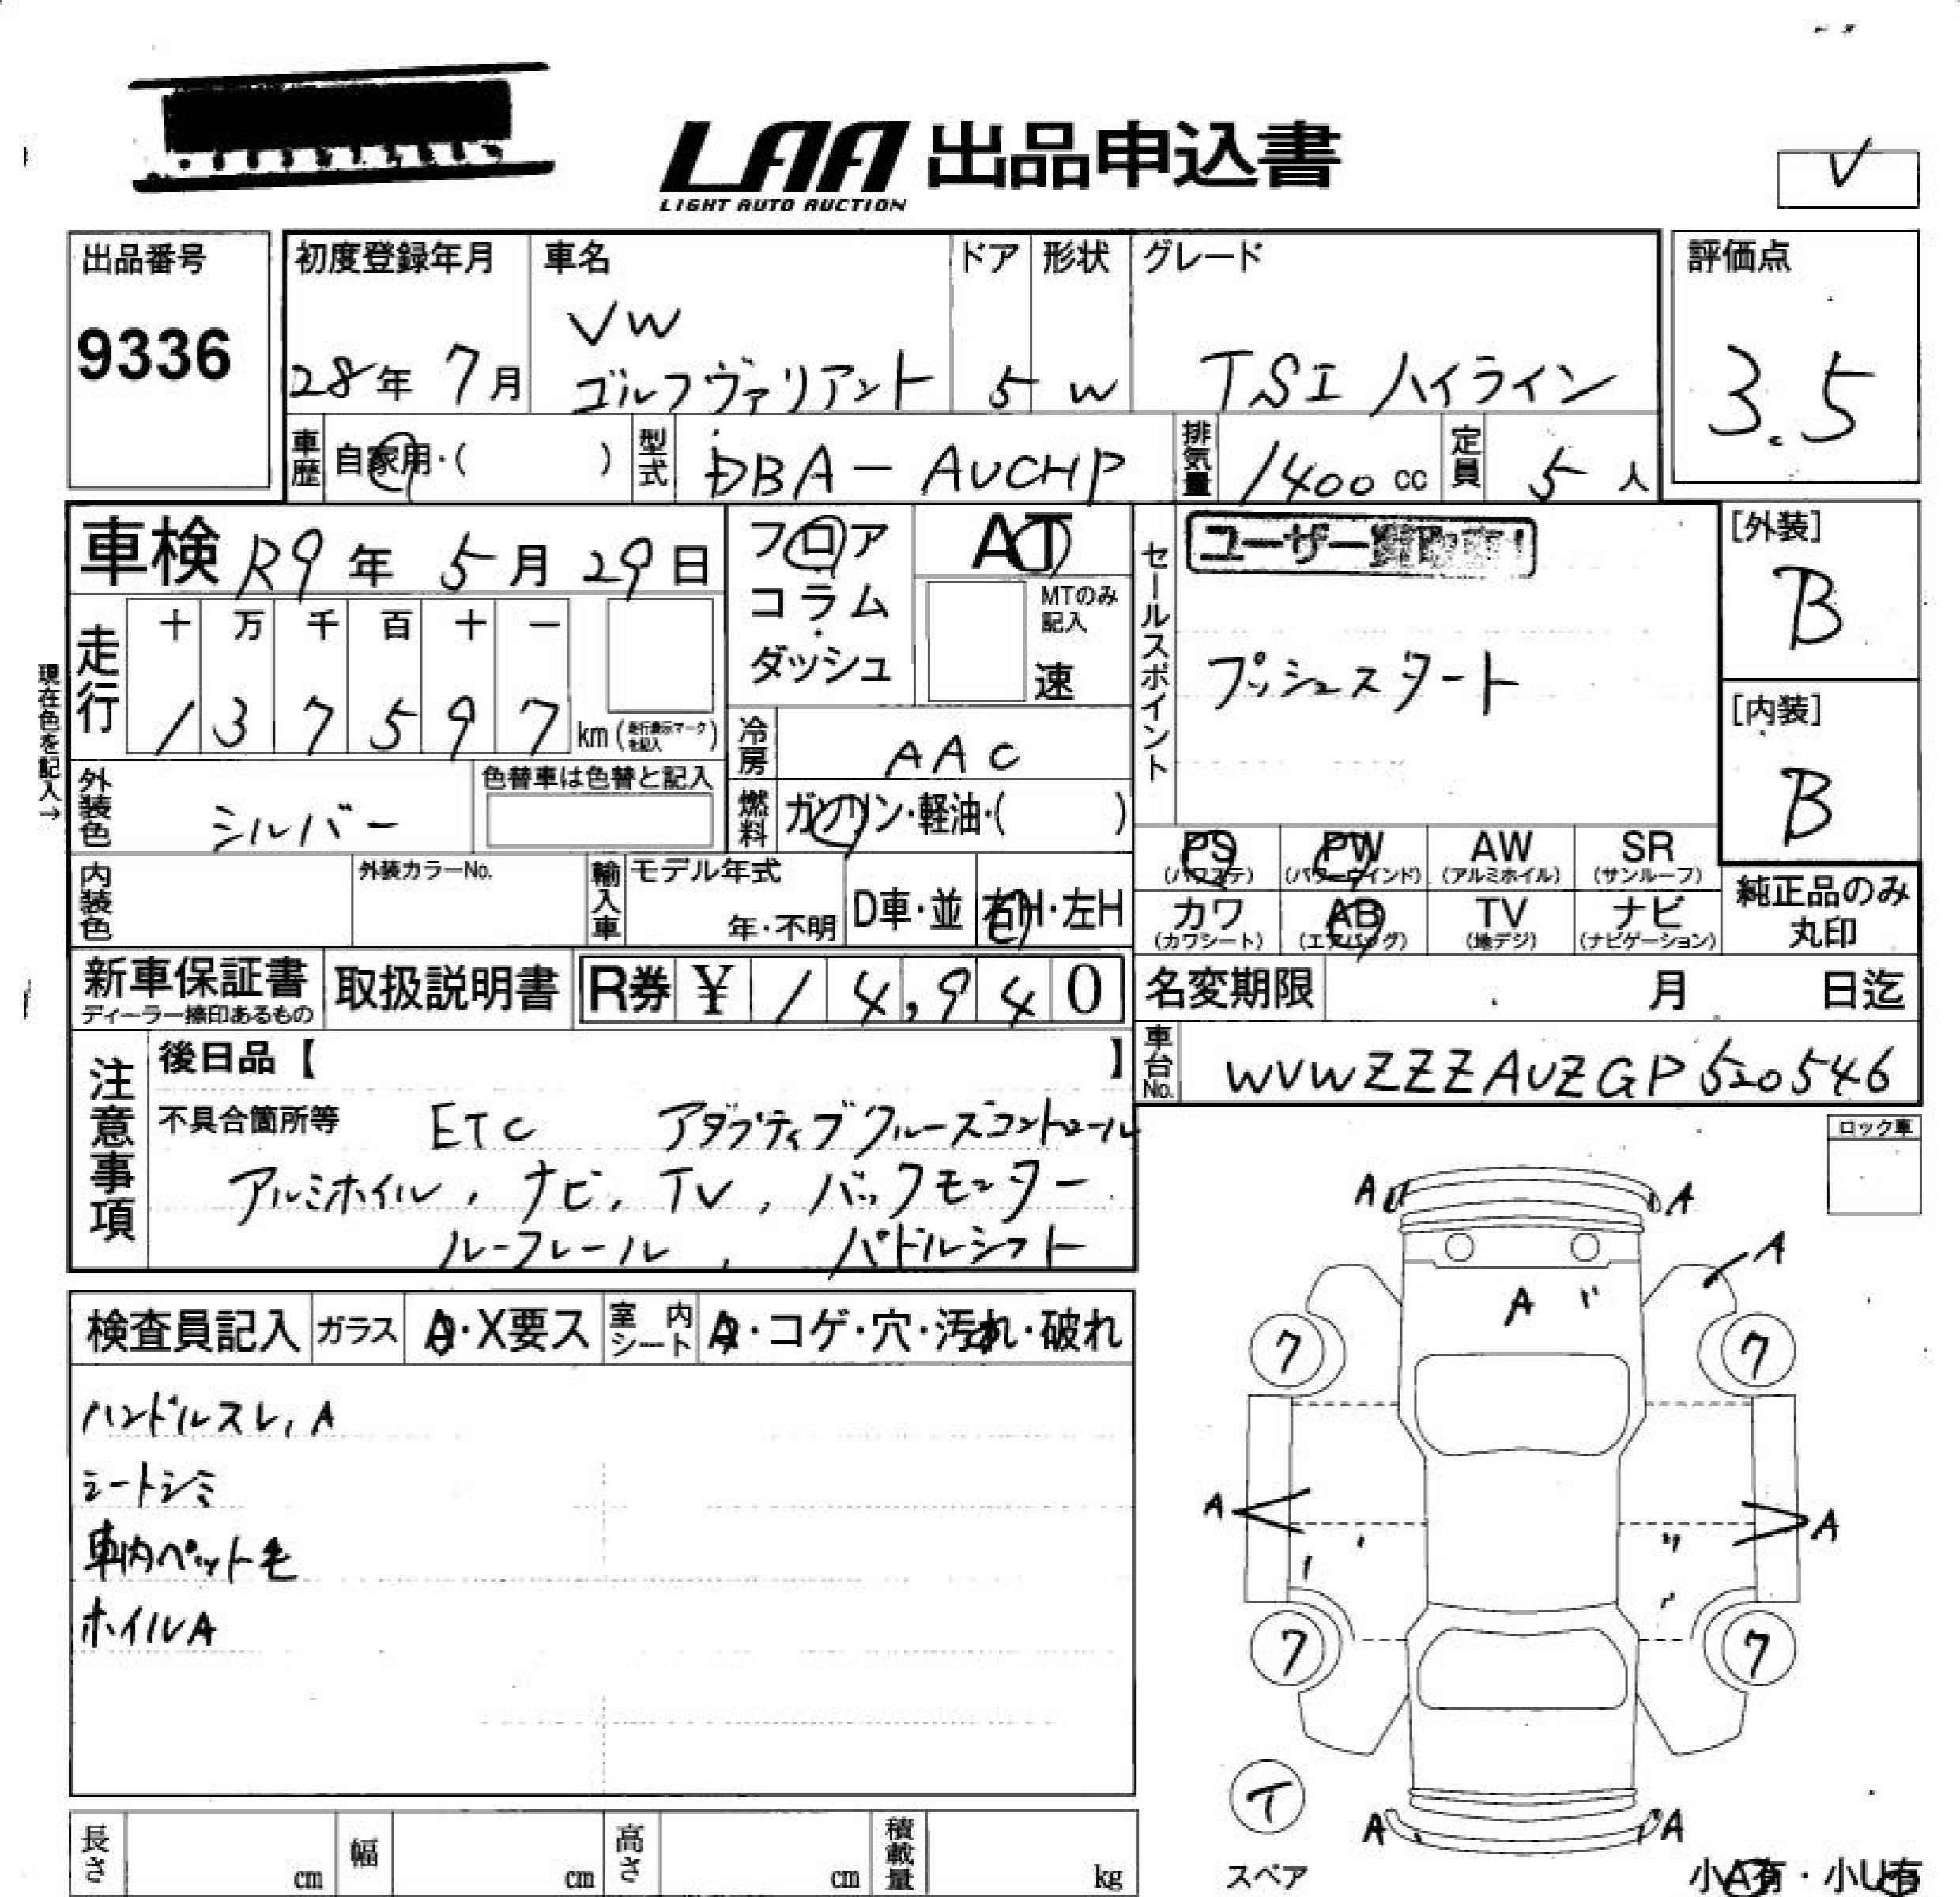 LAA 出品申込書
LIGHT AUTO AUCTION
V
出品番号
9336
初度登録年月
28年 7月
車名
VW
ゴルフヴァリアント
ドア
5
形状
W
グレード
TSI ハイライン
評価点
3.5
車歴 自家用・( )
型式 DBA-AUCHP
排気量 1400 cc
定員 5 人
車検 R9年 5月 29日
フロア
コラム
・
ダッシュ
AT
MTのみ
記入
速
セールスポイント
ユーザー買取車
プッシュスタート
[外装]
B
[内装]
B
現在色を記入→
走行
十 万 千 百 十 一
1 3 7 5 9 7 km (走行表示マークを記入)
冷房 AAC
外装色 シルバー
色替車は色替と記入
燃料 ガソリン・軽油・( )
内装色
外装カラーNo.
輸入車
モデル年式
年・不明
D車・並
右H・左H
PS AW SR
(パワステ) (アルミホイル) (サンルーフ)
PW
(パワーウインド)
カワ AB TV ナビ
(カワシート) (エアバッグ) (地デジ) (ナビゲーション)
純正品のみ
丸印
新車保証書
ディーラー捺印あるもの
取扱説明書
R券 ¥ 14,940
名変期限 月 日迄
車台No. WVWZZZAUZGP520546
注意事項
後日品【 】
不具合箇所等 ETC アダプティブクルーズコントロール
アルミホイル, ナビ, TV, バックモニター
ルーフレール, パドルシフト
ロック車
検査員記入
ガラス A・X要ス
室内シート A・コゲ・穴・汚れ・破れ
ハンドルスレ, A
シートシミ
車内ペット毛
ホイルA
A A
A
A
7 7
A A
7 7
T
スペア
A A
小A有・小U有
長さ cm
幅 cm
高さ cm
積載量 kg